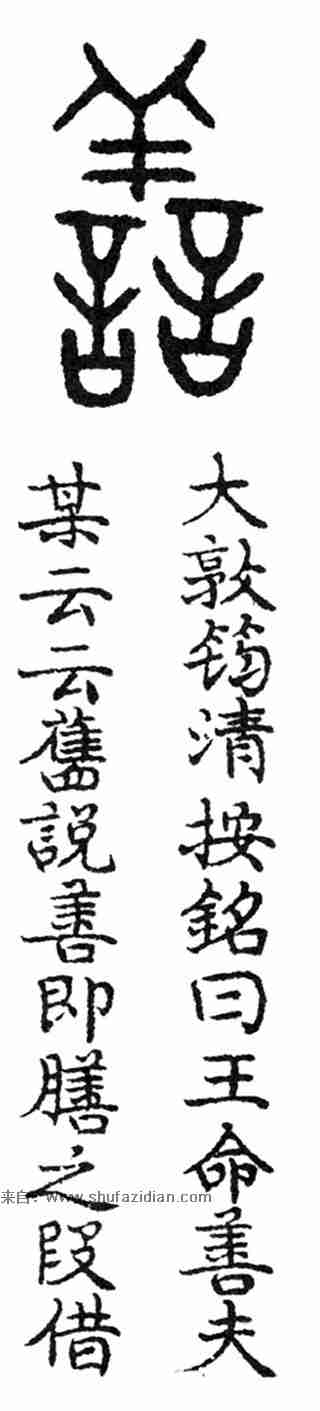 譱
大敦筠清按銘曰王命善夫
某云云舊説善即膳之叚借
来自：www.shufazidian.com